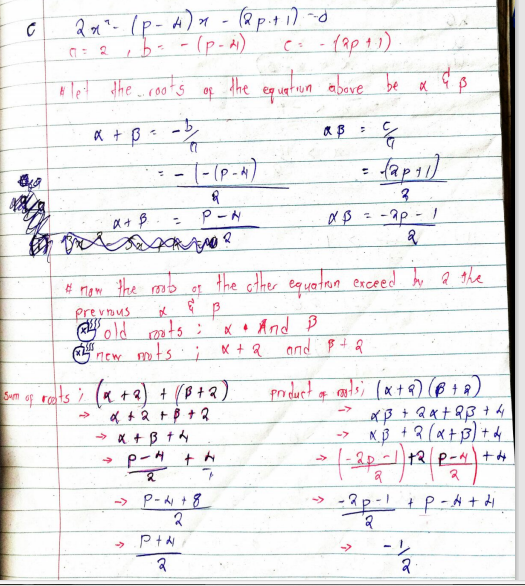 c 2x² - (p - 4)x - (2p + 1) = 0
a = 2 , b = - (p - 4) c = - (2p + 1)
# let the roots of the equation above be α & β
α + β = -b/a αβ = c/a
= - (-(p - 4))/2 = -(2p + 1)/2
α + β = p - 4/2 αβ = -2p - 1/2
# now the roots of the other equation exceed by 2 the
previous α & β
old roots ; α And β
new roots ; α + 2 and β + 2
sum of roots ; (α + 2) + (β + 2) product of roots ; (α + 2) (β + 2)
→ α + 2 + β + 2 → αβ + 2α + 2β + 4
→ α + β + 4 → αβ + 2 (α + β) + 4
→ p - 4/2 + 4/1 → (-2p - 1/2) + 2 (p - 4/2) + 4
→ p - 4 + 8/2 → -2p - 1/2 + p - 4 + 4
→ p + 4/2 → - 1/2